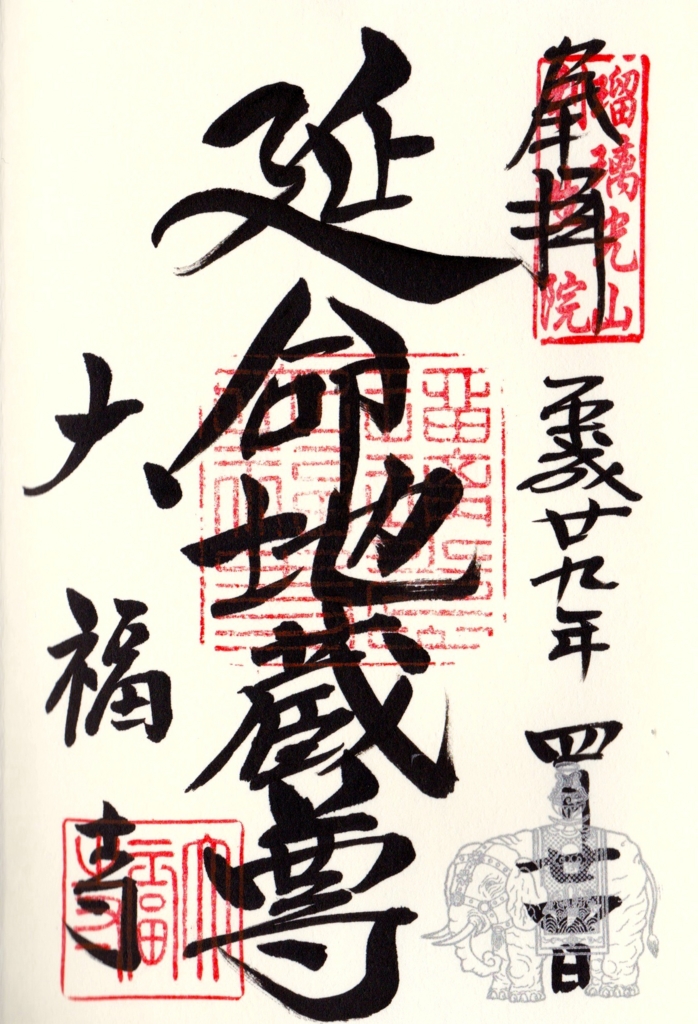 奉拝
瑠璃光山
院
平成廿九年
四月廿日
延命地蔵尊
大福寺
大福寺